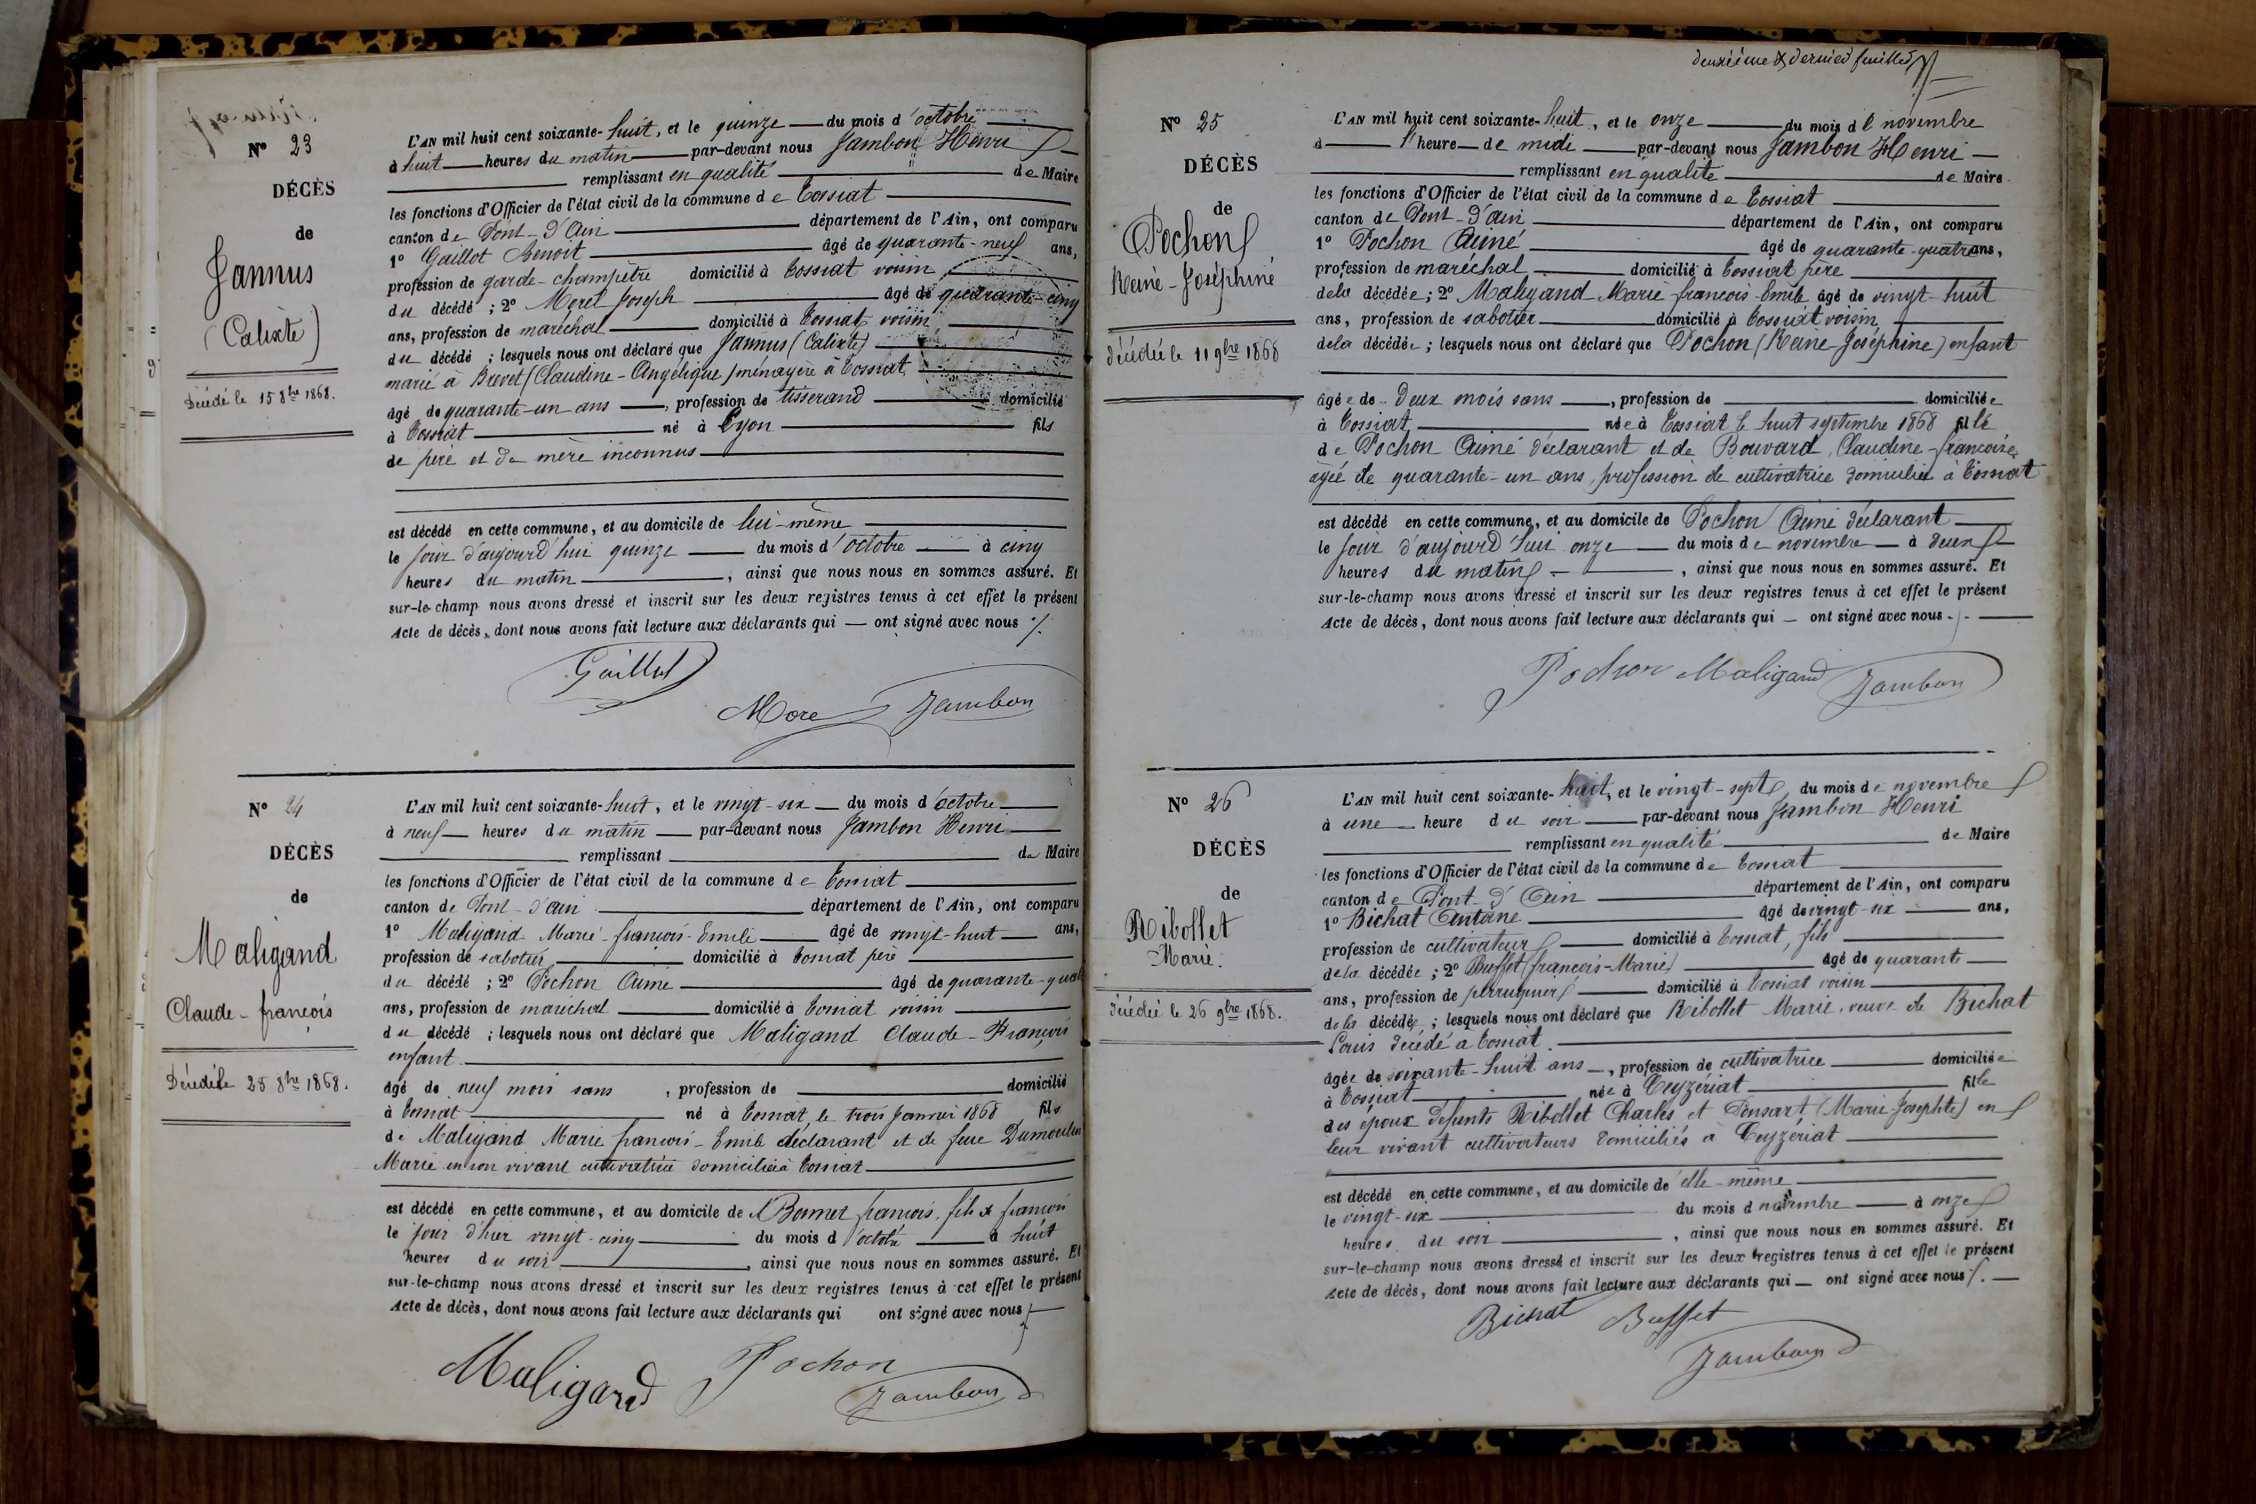 N° 23
DÉCÈS
de
Jannus
(Calixte)
Décédé le 15 8bre 1868.
L'AN mil huit cent soixante-huit, et le quinze du mois d'octobre
à huit heures du matin par-devant nous Jambon Henri
remplissant en qualité de Maire
les fonctions d'Officier de l'état civil de la commune de Tossiat
canton de Pont-d'Ain département de l'Ain, ont comparu
1° Gaillot Benoit âgé de quarante-neuf ans,
profession de garde-champêtre domicilié à Tossiat voisin
du décédé ; 2° Moret Joseph âgé de quarante-cinq
ans, profession de maréchal domicilié à Tossiat voisin
du décédé ; lesquels nous ont déclaré que Jannus (Calixte)
marié à Brevet (Claudine-Angélique) ménagère à Tossiat
âgé de quarante-un ans, profession de tisserand domicilié
à Tossiat né à Lyon fils
de père et de mère inconnus
est décédé en cette commune, et au domicile de lui-même
le jour d'aujourd'hui quinze du mois d'octobre à cinq
heures du matin, ainsi que nous nous en sommes assuré. Et
sur-le-champ nous avons dressé et inscrit sur les deux registres tenus à cet effet le présent
Acte de décès, dont nous avons fait lecture aux déclarants qui — ont signé avec nous
Gaillot
More Jambon
N° 24
DÉCÈS
de
Maligand
Claude-françois
Décédé le 25 8bre 1868.
L'AN mil huit cent soixante-huit, et le vingt-six du mois d'octobre
à neuf heures du matin par-devant nous Jambon Henri
remplissant de Maire
les fonctions d'Officier de l'état civil de la commune de Tossiat
canton de Pont-d'ain département de l'Ain, ont comparu
1° Maligand Marie-françois-Emile âgé de vingt-huit ans,
profession de sabotier domicilié à Tossiat père
du décédé ; 2° Pochon Aimé âgé de quarante-quat
ans, profession de maréchal domicilié à Tossiat voisin
du décédé ; lesquels nous ont déclaré que Maligand Claude-François
enfant
âgé de neuf mois sans, profession de domicilié
à Tossiat né à Tossiat, le trois Janvier 1868 fils
de Maligand Marie françois-Emile déclarant et de feue Dumoulin
Marie en son vivant cultivatrice domiciliée à Tossiat
est décédé en cette commune, et au domicile de françois, fils de françois
le jour d'hier vingt-cinq du mois d'octobre à huit
heures du soir, ainsi que nous nous en sommes assuré. Et
sur-le-champ nous avons dressé et inscrit sur les deux registres tenus à cet effet le présent
Acte de décès, dont nous avons fait lecture aux déclarants qui ont signé avec nous
Maligand Pochon
Jambon
deuxième & dernier feuillet
N° 25
DÉCÈS
de
Pochon
Reine-Joséphine
Décédée le 11 9bre 1868
L'AN mil huit cent soixante-huit, et le onze du mois de novembre
à l'heure de midi par-devant nous Jambon Henri
remplissant en qualité de Maire
les fonctions d'Officier de l'état civil de la commune de Tossiat
canton de Pont-d'Ain département de l'Ain, ont comparu
1° Pochon Aimé âgé de quarante-quatre ans,
profession de maréchal domicilié à Tossiat père
de la décédée ; 2° Maligand Marie-françois-Emile âgé de vingt-huit
ans, profession de sabotier domicilié à Tossiat voisin
de la décédée ; lesquels nous ont déclaré que Pochon (Reine-Joséphine) enfant
âgée de Deux mois sans, profession de domiciliée
à Tossiat née à Tossiat le huit septembre 1868 fille
de Pochon Aimé déclarant et de Bouvard, Claudine-françoise
âgée de quarante-un ans, profession de cultivatrice domiciliée à Tossiat
est décédé en cette commune, et au domicile de Pochon Aimé déclarant
le jour d'aujourd'hui onze du mois de novembre à deux
heures du matin, ainsi que nous nous en sommes assuré. Et
sur-le-champ nous avons dressé et inscrit sur les deux registres tenus à cet effet le présent
Acte de décès, dont nous avons fait lecture aux déclarants qui — ont signé avec nous
Pochon Maligand Jambon
N° 26
DÉCÈS
de
Ribollet
Marie.
Décédée le 26 9bre 1868.
L'AN mil huit cent soixante-huit, et le vingt-sept du mois de novembre
à une heure du soir par-devant nous Jambon Henri
remplissant en qualité de Maire
les fonctions d'Officier de l'état civil de la commune de Tossiat
canton de Pont-d'Ain département de l'Ain, ont comparu
1° Bichat Antoine âgé de vingt-six ans,
profession de cultivateur domicilié à Tossiat, fils
de la décédée ; 2° Buffet (françois-Marie) âgé de quarante
ans, profession de perruquier domicilié à Tossiat voisin
de la décédée ; lesquels nous ont déclaré que Ribollet Marie, veuve de Bichat
Louis décédé à Tossiat
âgée de soixante-huit ans, profession de cultivatrice domiciliée
à Tossiat née à Ceyzériat fille
des époux défunts Ribollet Charles et Ponsart (Marie-Josephte) en
leur vivant cultivateurs domiciliés à Ceyzériat
est décédé en cette commune, et au domicile de elle-même
le vingt-six du mois de novembre à onze
heures du soir, ainsi que nous nous en sommes assuré. Et
sur-le-champ nous avons dressé et inscrit sur les deux registres tenus à cet effet le présent
Acte de décès, dont nous avons fait lecture aux déclarants qui — ont signé avec nous
Bichat Buffet
Jambon